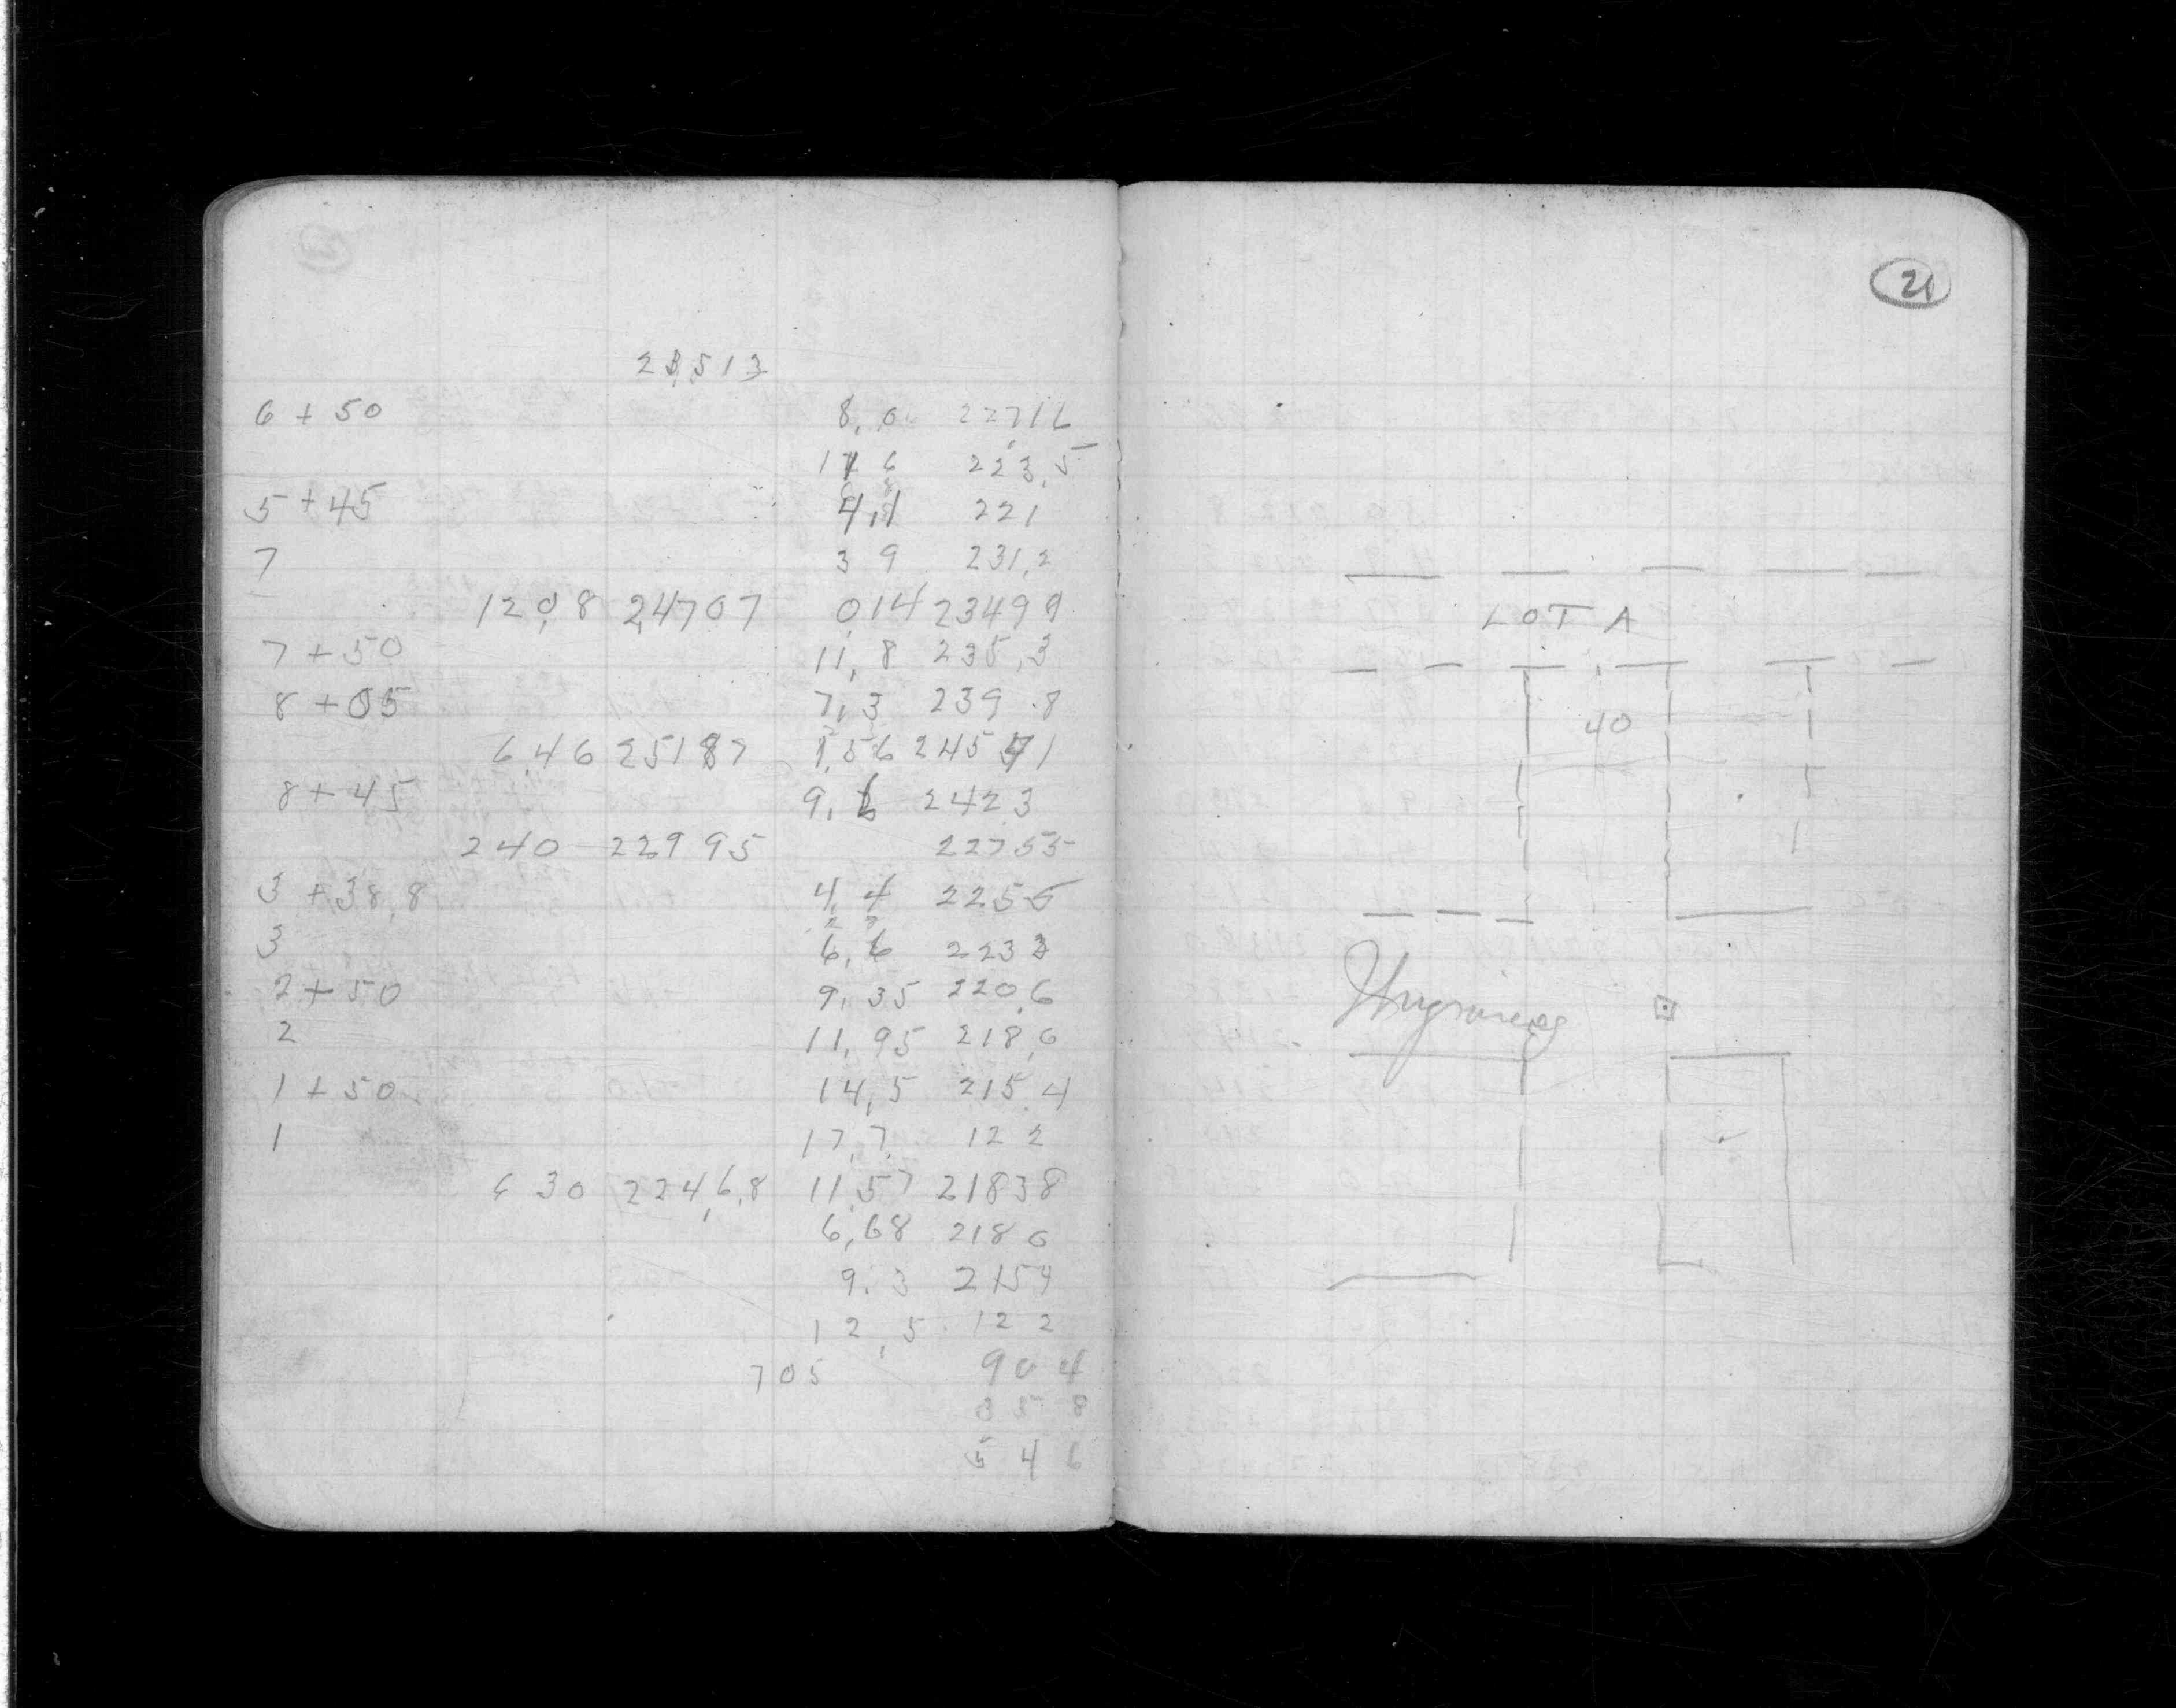 23,513
6 + 50 8,0 22716
11 6 223,5
5 + 45 4,1 221
7 3 9 231,2
120,8 24707 0,14 23499
7 + 50 11,8 235,3
8 + 05 7,3 239.8
6,46 25187 1,56 245 71
8 + 45 9,6 2423
240 22995 22755
3 + 38,8 4,4 2256
3 6,6 2233
2 + 50 9,35 220,6
2 11,95 218,0
1 + 50 14,5 215,4
1 17,7 12 2
6 30 224,6,8 11,57 21838
6,68 218 0
9.3 2154
12,5 12 2
705 90 4
3 5 8
5 4 6
21
LOT A
40